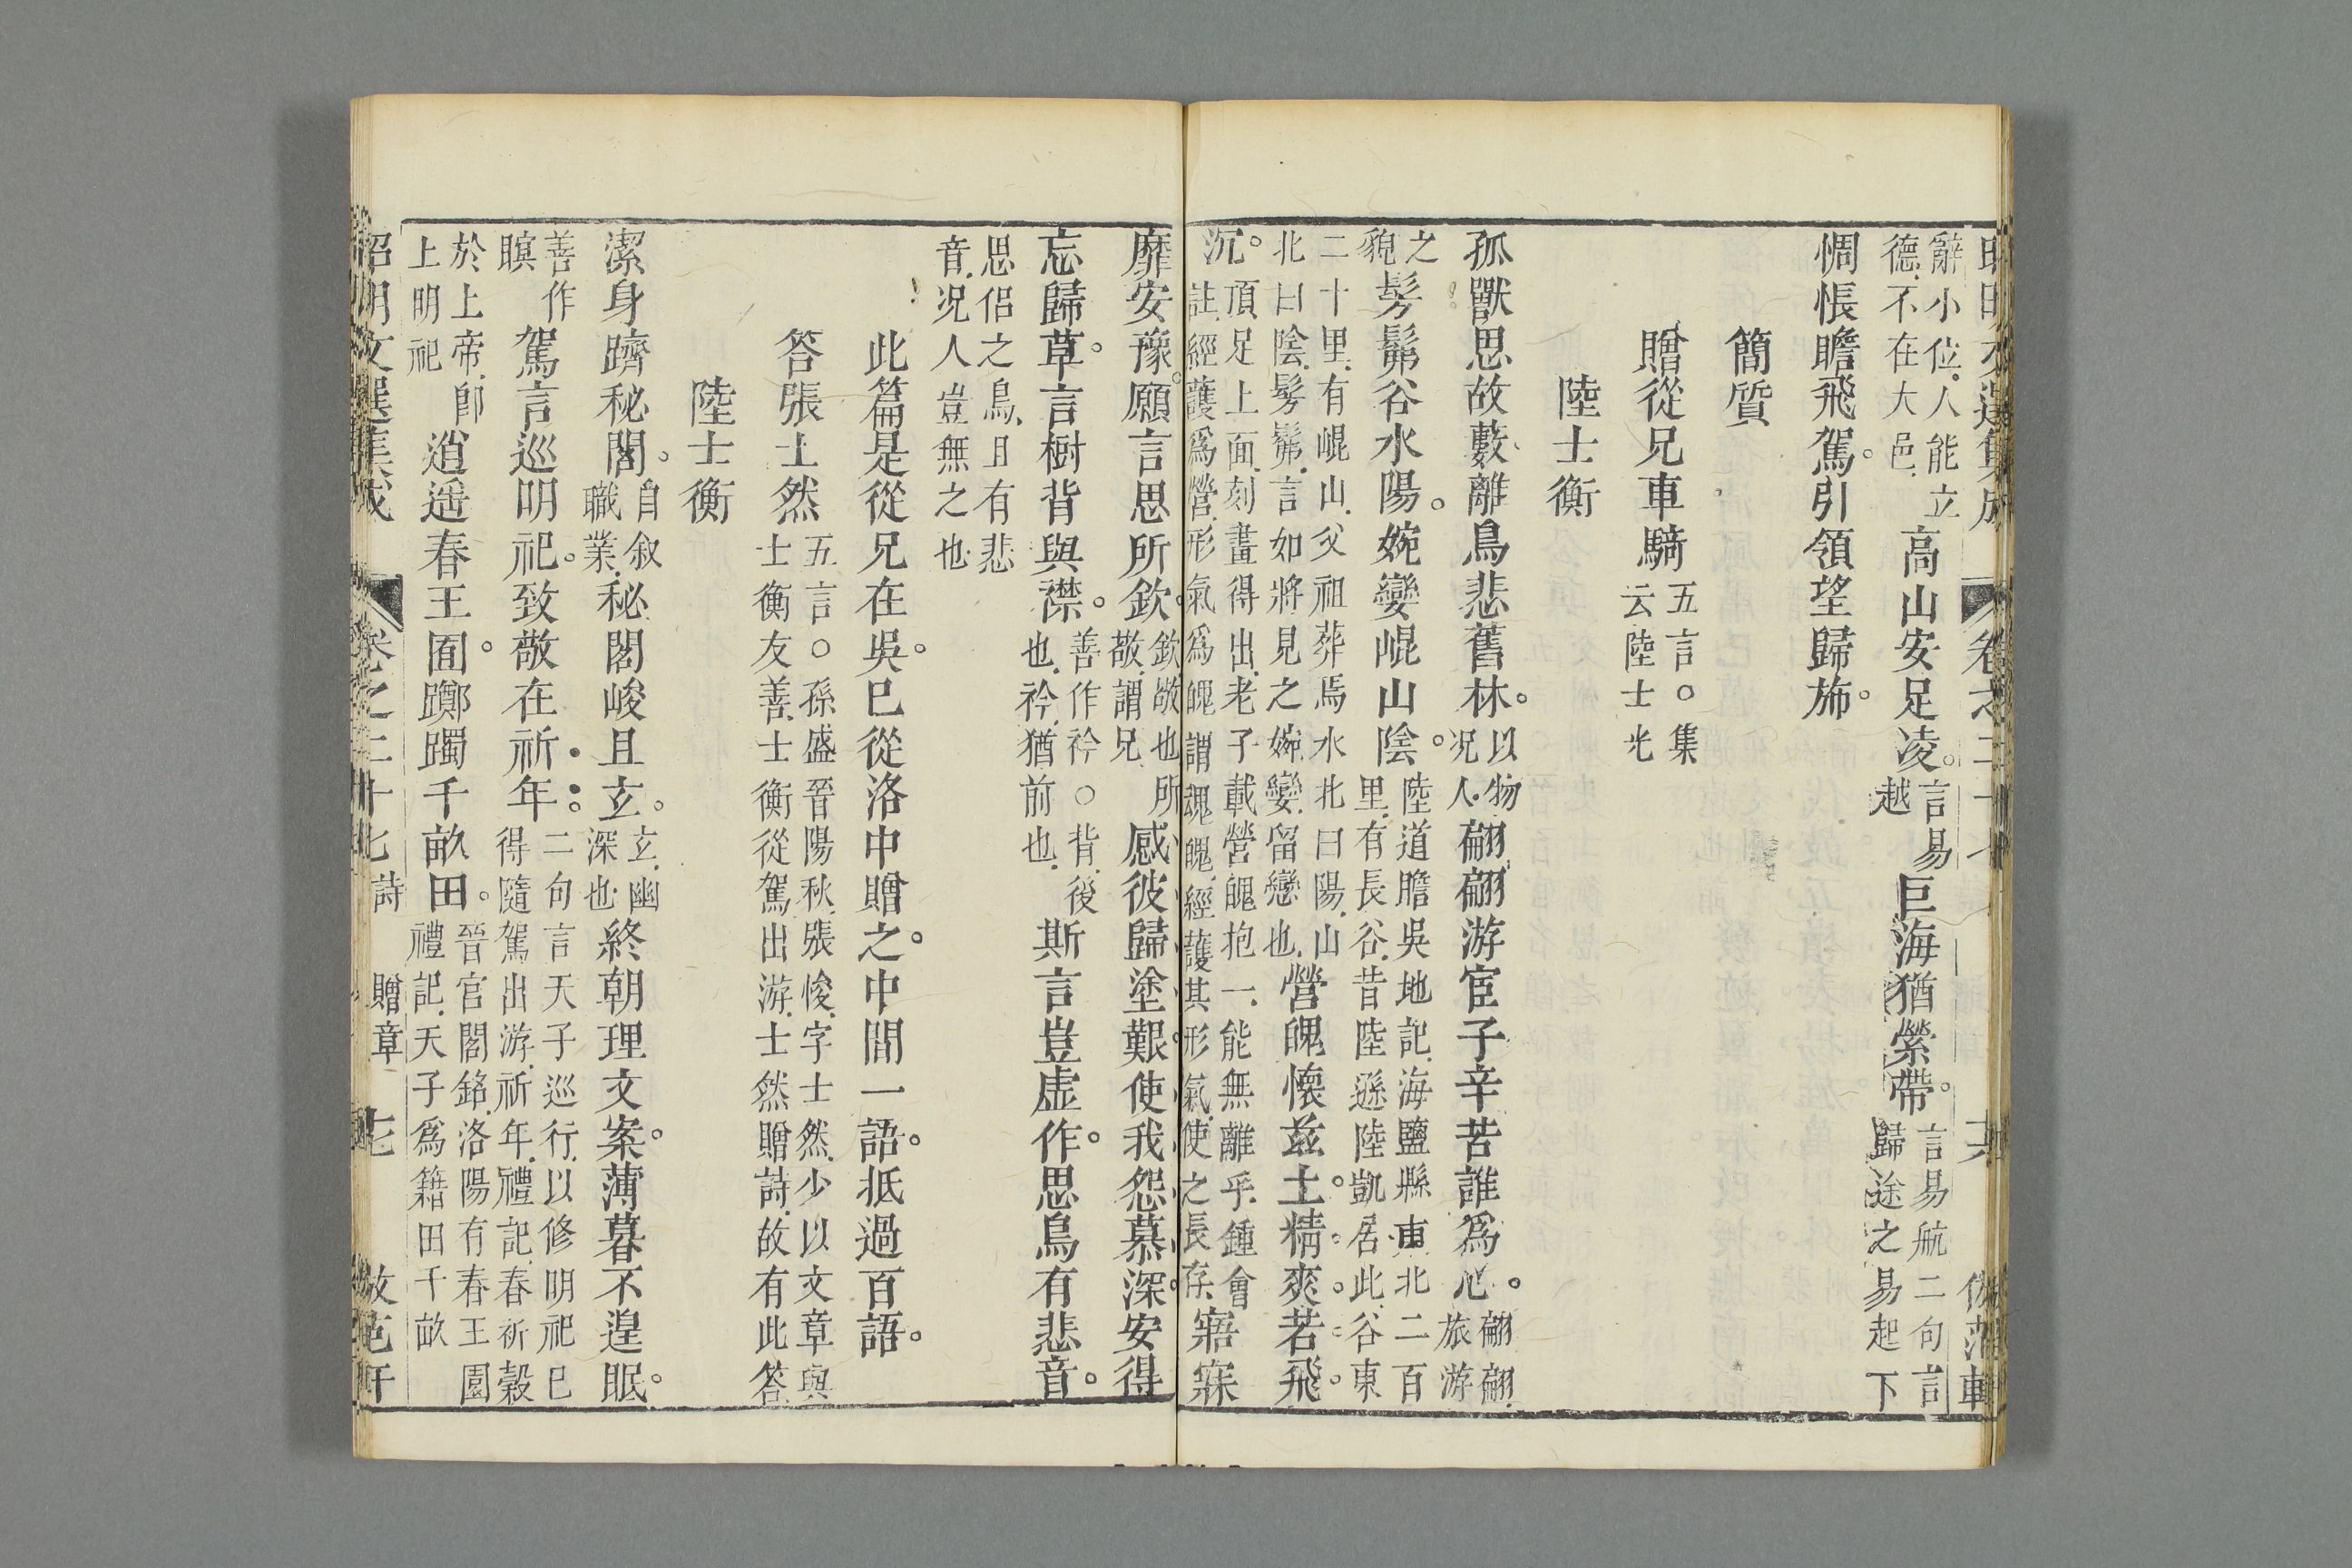 昭明文選集成 卷之二十七 共 倣范軒
辭小位人能立
德不在大邑 高山安足凌言易
越 巨海猶縈帶言易航二句言
歸途之易起下
惆悵瞻飛駕引領望歸斾
簡質
贈從兄車騎五言○集
云陸士光
陸士衡
孤獸思故藪離鳥悲舊林以物
况人 翩翩游宦子辛苦誰爲心翩翩
旅游
之
貌 髣髴谷水陽婉孌崐山陰陸道瞻吳地記海鹽縣東北二百
里有長谷昔陸遜陸凱居此谷東
二十里有崐山父祖葬焉水北曰陽山
北曰陰髣髴言如將見之婉孌留戀也 營魄懷兹土精爽若飛
沉頂足上面刻畫得出老子載營魄抱一能無離乎鍾會
註經護爲營形氣爲魄謂魂魄經護其形氣使之長存 寤寐
靡安豫願言思所欽欽敬也所
敬謂兄 感彼歸塗艱使我怨慕深安得
忘歸草言樹背與襟善作衿○背後
也衿猶前也 斯言豈虚作思鳥有悲音
思侣之鳥且有悲
音况人豈無之也
此篇是從兄在吳已從洛中贈之中間一語抵過百語
答張士然五言○孫盛晉陽秋張悛字士然少以文章與
士衡友善士衡從駕出游士然贈詩故有此答
陸士衡
潔身躋秘閣自叙
職業 秘閣峻且玄玄幽
深也 終朝理文案薄暮不遑眠
善作
瞑 駕言巡明祀致敬在祈年二句言天子巡行以修明祀已
得隨駕出游祈年禮記春祈穀
於上帝卽
上明祀 逍遥春王囿躑躅千畝田晉官閣銘洛陽有春王園
禮記天子爲籍田千畝
昭明文選集成 卷之二十七詩 贈章 七 倣范軒